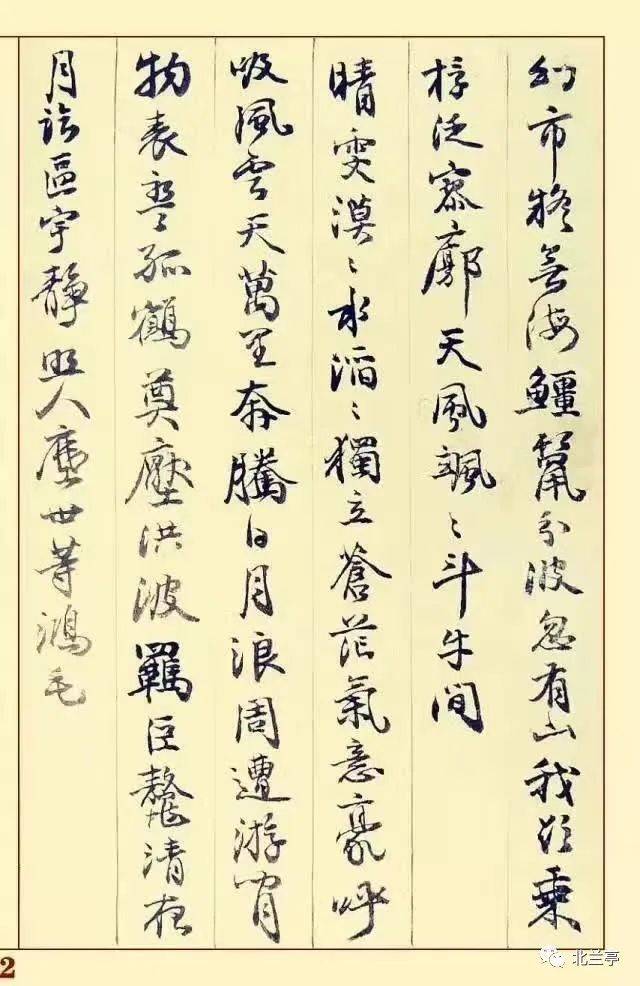 幻市無海鱷分波忽有山我欲乘
桴泛寥廓天風颯〻斗牛間
晴雯漠〻水滔〻獨立蒼茫氣意豪呼
吸風雲天萬里奔騰日月浪周遭游
物表孤鶴奠壓洪波羈巨鰲清夜
月區宇靜照人塵世等鴻毛
2
北兰亭